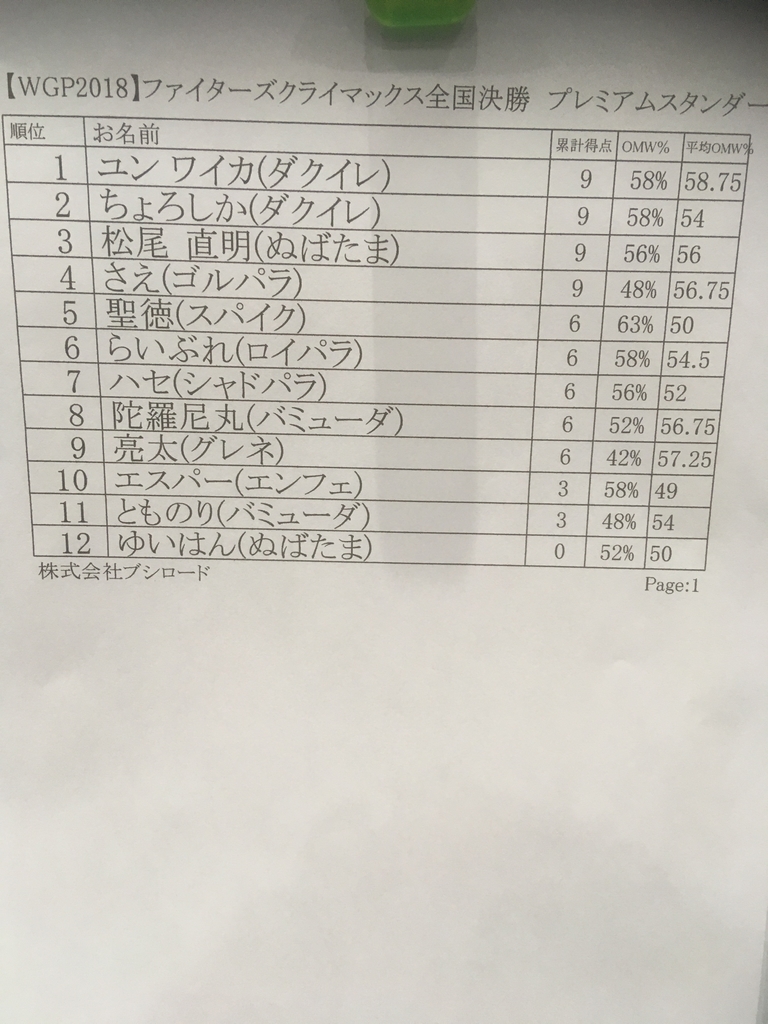 【WGP2018】ファイターズクライマックス全国決勝 プレミアムスタンダー
順位 お名前 累計得点 OMW% 平均OMW%
1 ユン ワイカ(ダクイレ) 9 58% 58.75
2 ちょろしか(ダクイレ) 9 58% 54
3 松尾 直明(ぬばたま) 9 56% 56
4 さえ(ゴルパラ) 9 48% 56.75
5 聖徳(スパイク) 6 63% 50
6 らいぶれ(ロイパラ) 6 58% 54.5
7 ハセ(シャドパラ) 6 56% 52
8 陀羅尼丸(バミューダ) 6 52% 56.75
9 亮太(グレネ) 6 42% 57.25
10 エスパー(エンフェ) 3 58% 49
11 とものり(バミューダ) 3 48% 54
12 ゆいはん(ぬばたま) 0 52% 50
株式会社ブシロード Page:1